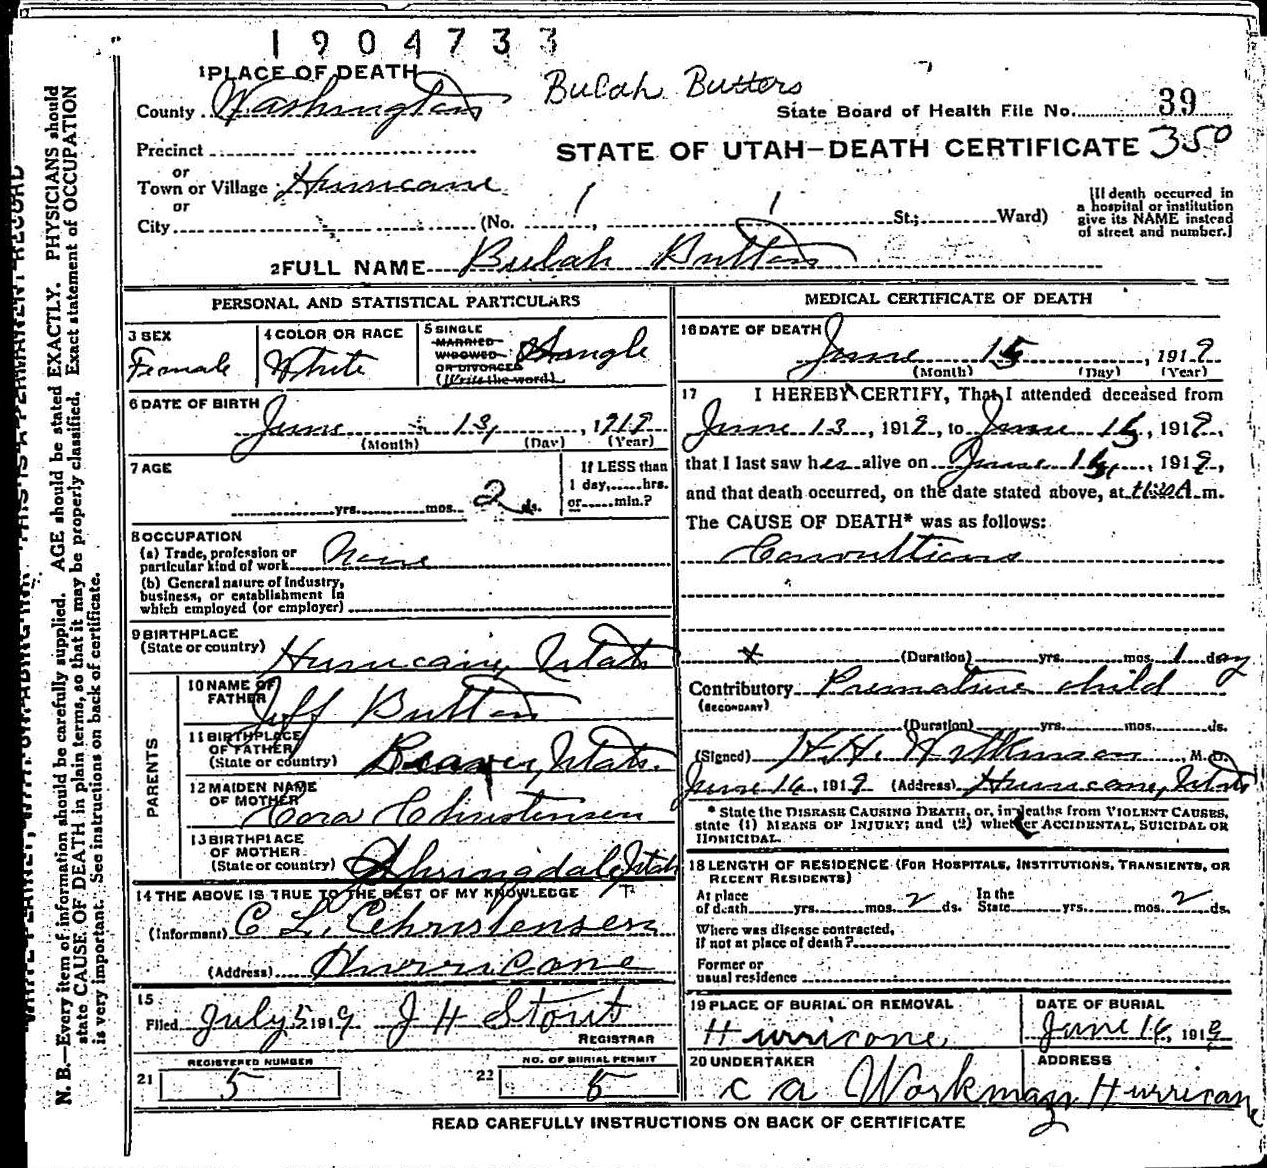 1904733
1 PLACE OF DEATH
Bulah Butters
County Washington
State Board of Health File No. 39
Precinct
STATE OF UTAH—DEATH CERTIFICATE 350
or
Town or Village Hurricane
or
City (No. St.; Ward)
[If death occurred in
a hospital or institution
give its NAME instead
of street and number.]
2 FULL NAME Bulah Butters
PERSONAL AND STATISTICAL PARTICULARS
3 SEX
Female
4 COLOR OR RACE
White
5 SINGLE
MARRIED
WIDOWED
OR DIVORCED
(Write the word)
Single
6 DATE OF BIRTH
June 13, 1919
(Month) (Day) (Year)
7 AGE
yrs. mos. 2 ds.
If LESS than
1 day, hrs.
or min.?
8 OCCUPATION
(a) Trade, profession or
particular kind of work None
(b) General nature of industry,
business, or establishment in
which employed (or employer)
9 BIRTHPLACE
(State or country) Hurricane, Utah
PARENTS
10 NAME OF
FATHER Jeff Butters
11 BIRTHPLACE
OF FATHER
(State or country) Beaver, Utah.
12 MAIDEN NAME
OF MOTHER Cora Christensen
13 BIRTHPLACE
OF MOTHER
(State or country) Springdale, Utah
14 THE ABOVE IS TRUE TO THE BEST OF MY KNOWLEDGE
(Informant) C L Christensen
(Address) Hurricane
15
Filed July 5 1919 J H Stout
REGISTRAR
REGISTERED NUMBER
21 5
NO. OF BURIAL PERMIT
22 5
MEDICAL CERTIFICATE OF DEATH
16 DATE OF DEATH
June 15, 1919
(Month) (Day) (Year)
17 I HEREBY CERTIFY, That I attended deceased from
June 13, 1919, to June 15, 1919,
that I last saw her alive on June 15, 1919,
and that death occurred, on the date stated above, at A.m.
The CAUSE OF DEATH* was as follows:
Convultions
(Duration) yrs. mos. 1 day
Contributory Premature child
(SECONDARY)
(Duration) yrs. mos. ds.
(Signed) H. H. Wilkinson, M.D.
June 16, 1919 (Address) Hurricane, Utah
* State the DISEASE CAUSING DEATH, or, in deaths from VIOLENT CAUSES,
state (1) MEANS OF INJURY; and (2) whether ACCIDENTAL, SUICIDAL OR
HOMICIDAL.
18 LENGTH OF RESIDENCE (FOR HOSPITALS, INSTITUTIONS, TRANSIENTS, OR
RECENT RESIDENTS)
At place
of death yrs. mos. 2 ds.
In the
State yrs. mos. 2 ds.
Where was disease contracted,
if not at place of death?
Former or
usual residence
19 PLACE OF BURIAL OR REMOVAL
Hurricane,
DATE OF BURIAL
June 16, 1919
20 UNDERTAKER
C A Workman
ADDRESS
Hurricane
READ CAREFULLY INSTRUCTIONS ON BACK OF CERTIFICATE
WRITE PLAINLY, WITH UNFADING INK—THIS IS A PERMANENT RECORD
N. B.—Every item of information should be carefully supplied. AGE should be stated EXACTLY. PHYSICIANS should
state CAUSE OF DEATH in plain terms, so that it may be properly classified. Exact statement of OCCUPATION
is very important. See instructions on back of certificate.